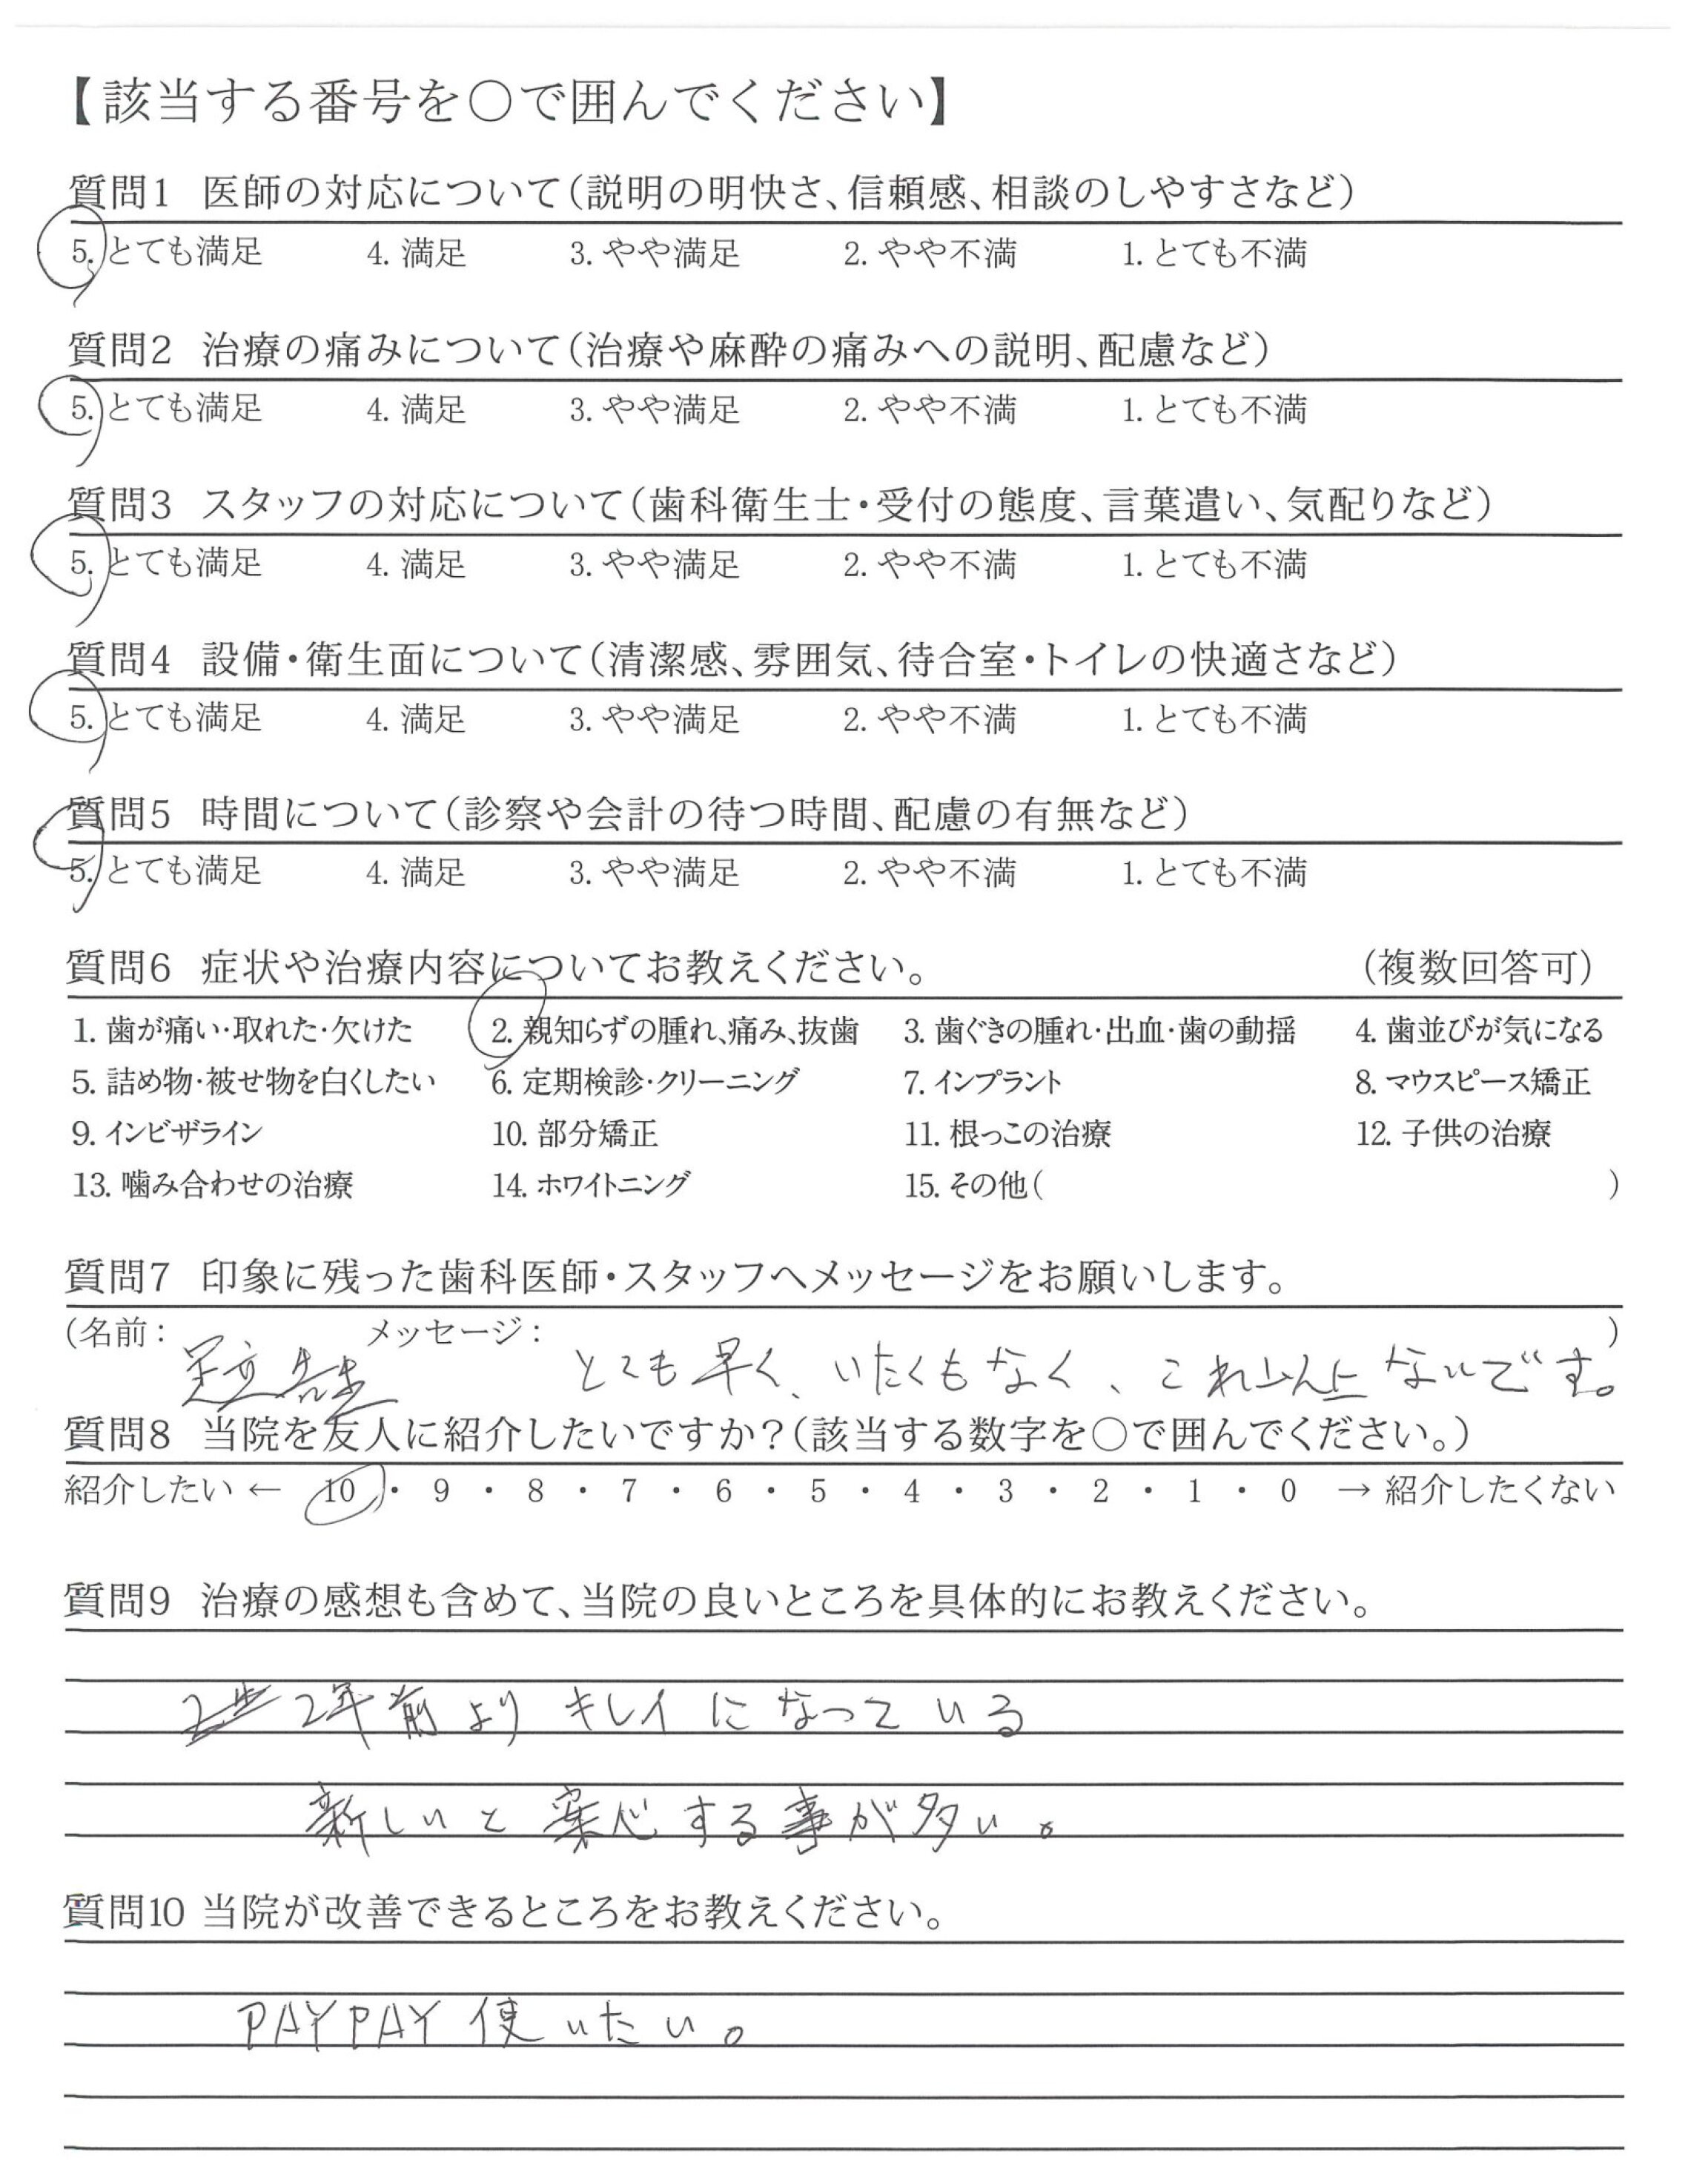 【該当する番号を○で囲んでください】
質問1 医師の対応について(説明の明快さ、信頼感、相談のしやすさなど)
5. とても満足 4. 満足 3. やや満足 2. やや不満 1. とても不満
質問2 治療の痛みについて(治療や麻酔の痛みへの説明、配慮など)
5. とても満足 4. 満足 3. やや満足 2. やや不満 1. とても不満
質問3 スタッフの対応について(歯科衛生士・受付の態度、言葉遣い、気配りなど)
5. とても満足 4. 満足 3. やや満足 2. やや不満 1. とても不満
質問4 設備・衛生面について(清潔感、雰囲気、待合室・トイレの快適さなど)
5. とても満足 4. 満足 3. やや満足 2. やや不満 1. とても不満
質問5 時間について(診察や会計の待つ時間、配慮の有無など)
5. とても満足 4. 満足 3. やや満足 2. やや不満 1. とても不満
質問6 症状や治療内容についてお教えください。 (複数回答可)
1. 歯が痛い・取れた・欠けた 2. 親知らずの腫れ、痛み、抜歯 3. 歯ぐきの腫れ・出血・歯の動揺 4. 歯並びが気になる
5. 詰め物・被せ物を白くしたい 6. 定期検診・クリーニング 7. インプラント 8. マウスピース矯正
9. インビザライン 10. 部分矯正 11. 根っこの治療 12. 子供の治療
13. 噛み合わせの治療 14. ホワイトニング 15. その他( )
質問7 印象に残った歯科医師・スタッフへメッセージをお願いします。
(名前: メッセージ: )
足立先生 とても早く、いたくもなく、これ以上ないです。
質問8 当院を友人に紹介したいですか?(該当する数字を○で囲んでください。)
紹介したい ← 10 ・ 9 ・ 8 ・ 7 ・ 6 ・ 5 ・ 4 ・ 3 ・ 2 ・ 1 ・ 0 → 紹介したくない
質問9 治療の感想も含めて、当院の良いところを具体的にお教えください。
2年前よりキレイになっている
新しいと安心する事が多い。
質問10 当院が改善できるところをお教えください。
PAYPAY使いたい。